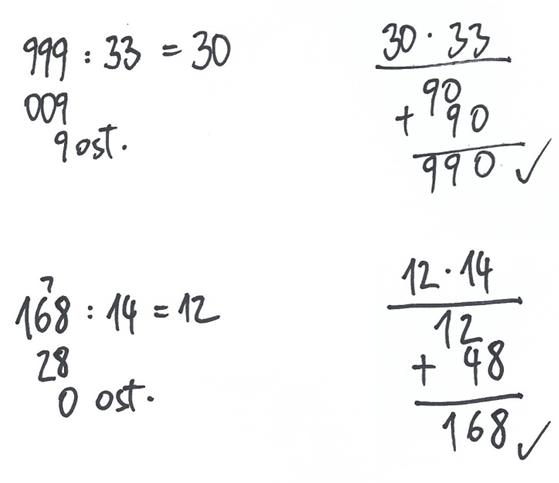 999 : 33 = 30
009
9 ost.
30 · 33
90
+ 90
990 ✓
7
168 : 14 = 12
28
0 ost.
12 · 14
12
+ 48
168 ✓